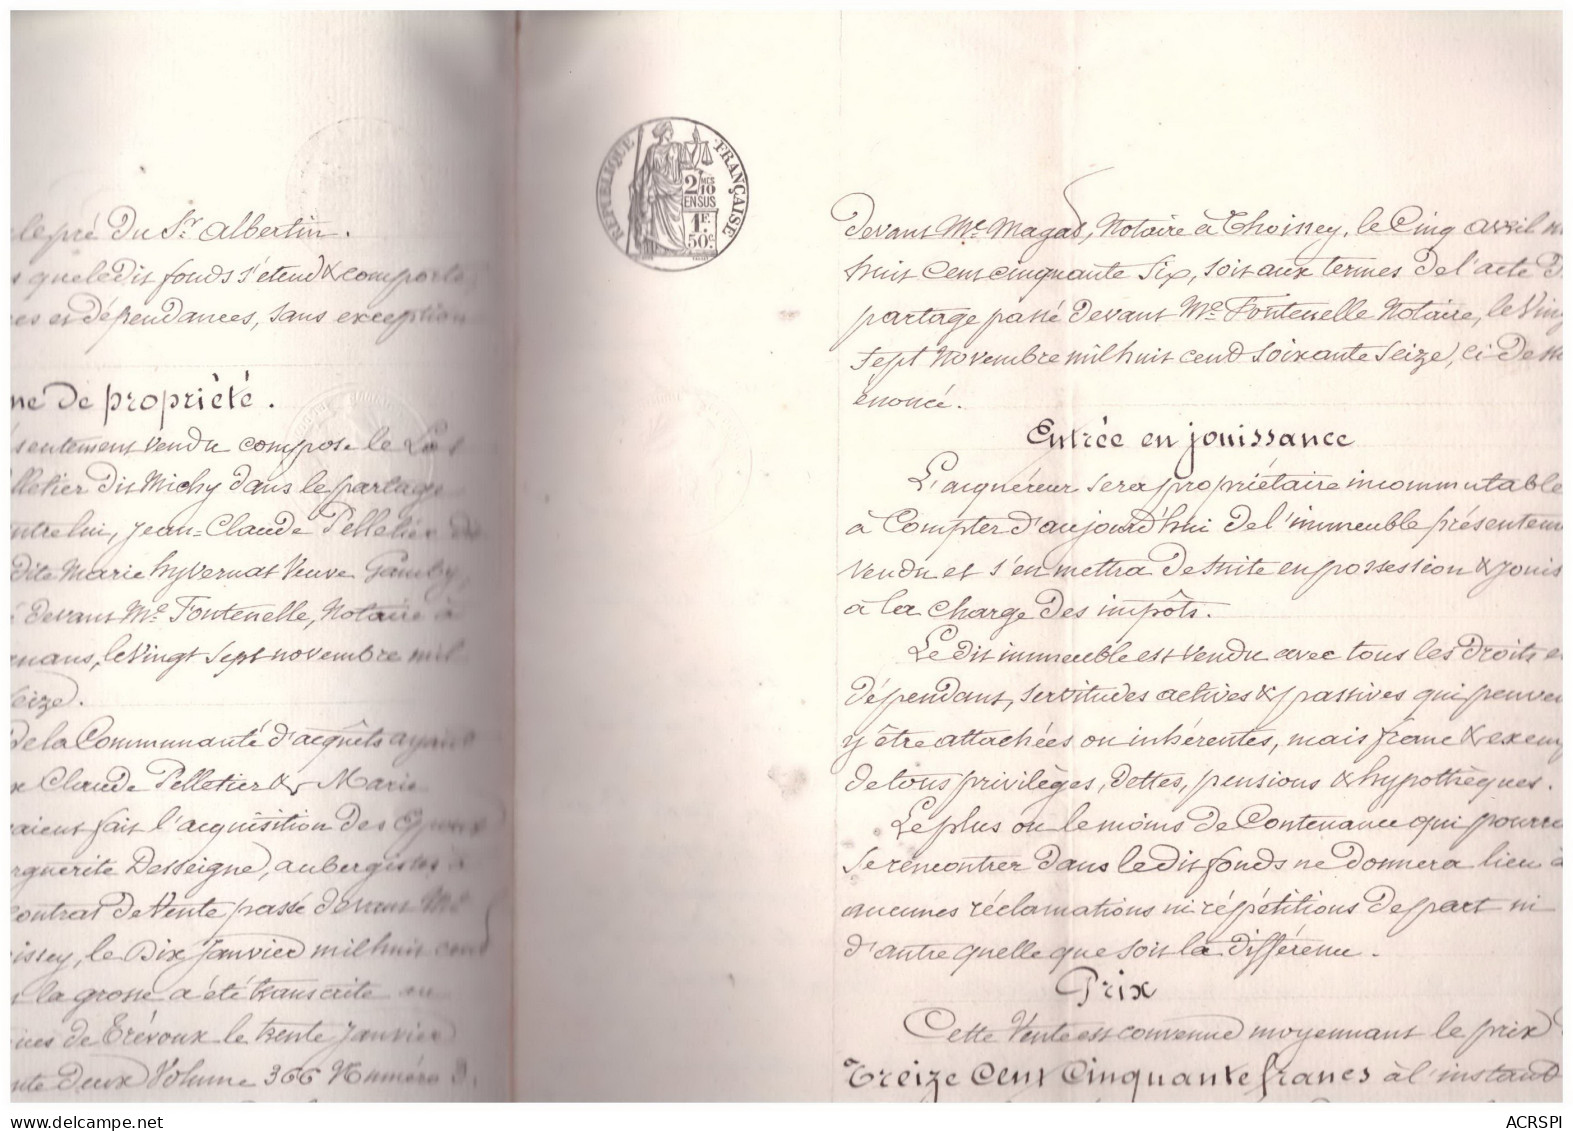 le pré du Sr. Albertin.
que le dit fonds s'étend & comporte
et dépendances, sans exception
ne de propriété.
sentement vendu compose le Lot
lletier dit Michy dans le partage
ntre lui, Jean-Claude Pelletier
dite Marie hyvernat Veuve Gamby,
devant Me. Fontenelle, Notaire à
gnans, le vingt sept novembre mil
Seize.
de la Communauté d'acquêts ayant
Claude Pelletier & Marie
aient fait l'acquisition des Epoux
rguerite Desseigne, aubergistes à
contrat de Vente passé devant Me
issey, le Dix Janvier mil huit cent
la grosse a été transcrite au
de Trévoux le trente Janvier
nte deux Volume 366 Numéro 3.
RÉPUBLIQUE FRANÇAISE
2 MES
10
EN SUS
1F.
50c.
devant Me. Magat, Notaire à Thoissey, le Cinq avril
huit cent cinquante six, soit aux termes de l'acte de
partage passé devant Me. Fontenelle Notaire, le Ving
sept Novembre mil huit cent soixante Seize, ci dess
énoncé.
Entrée en jouissance
L'acquéreur sera propriétaire incommutable
à Compter d'aujourd'hui de l'immeuble présentem
vendu et s'en mettra de suite en possession & jouis
à la charge des impôts.
Le dit immeuble est vendu avec tous les droits e
dépendant, servitudes actives & passives qui peuven
y être attachées ou inhérentes, mais franc & exemp
de tous privilèges, dettes, pensions & hypothèques.
Le plus ou le moins de Contenance qui pourra
se rencontrer dans le dit fonds ne donnera lieu à
aucunes réclamations ni répétitions de part ni
d'autre quelle que soit la différence.
Prix
Cette Vente est convenue moyennant le prix
Treize Cent Cinquante francs à l'instant
ACRSPI